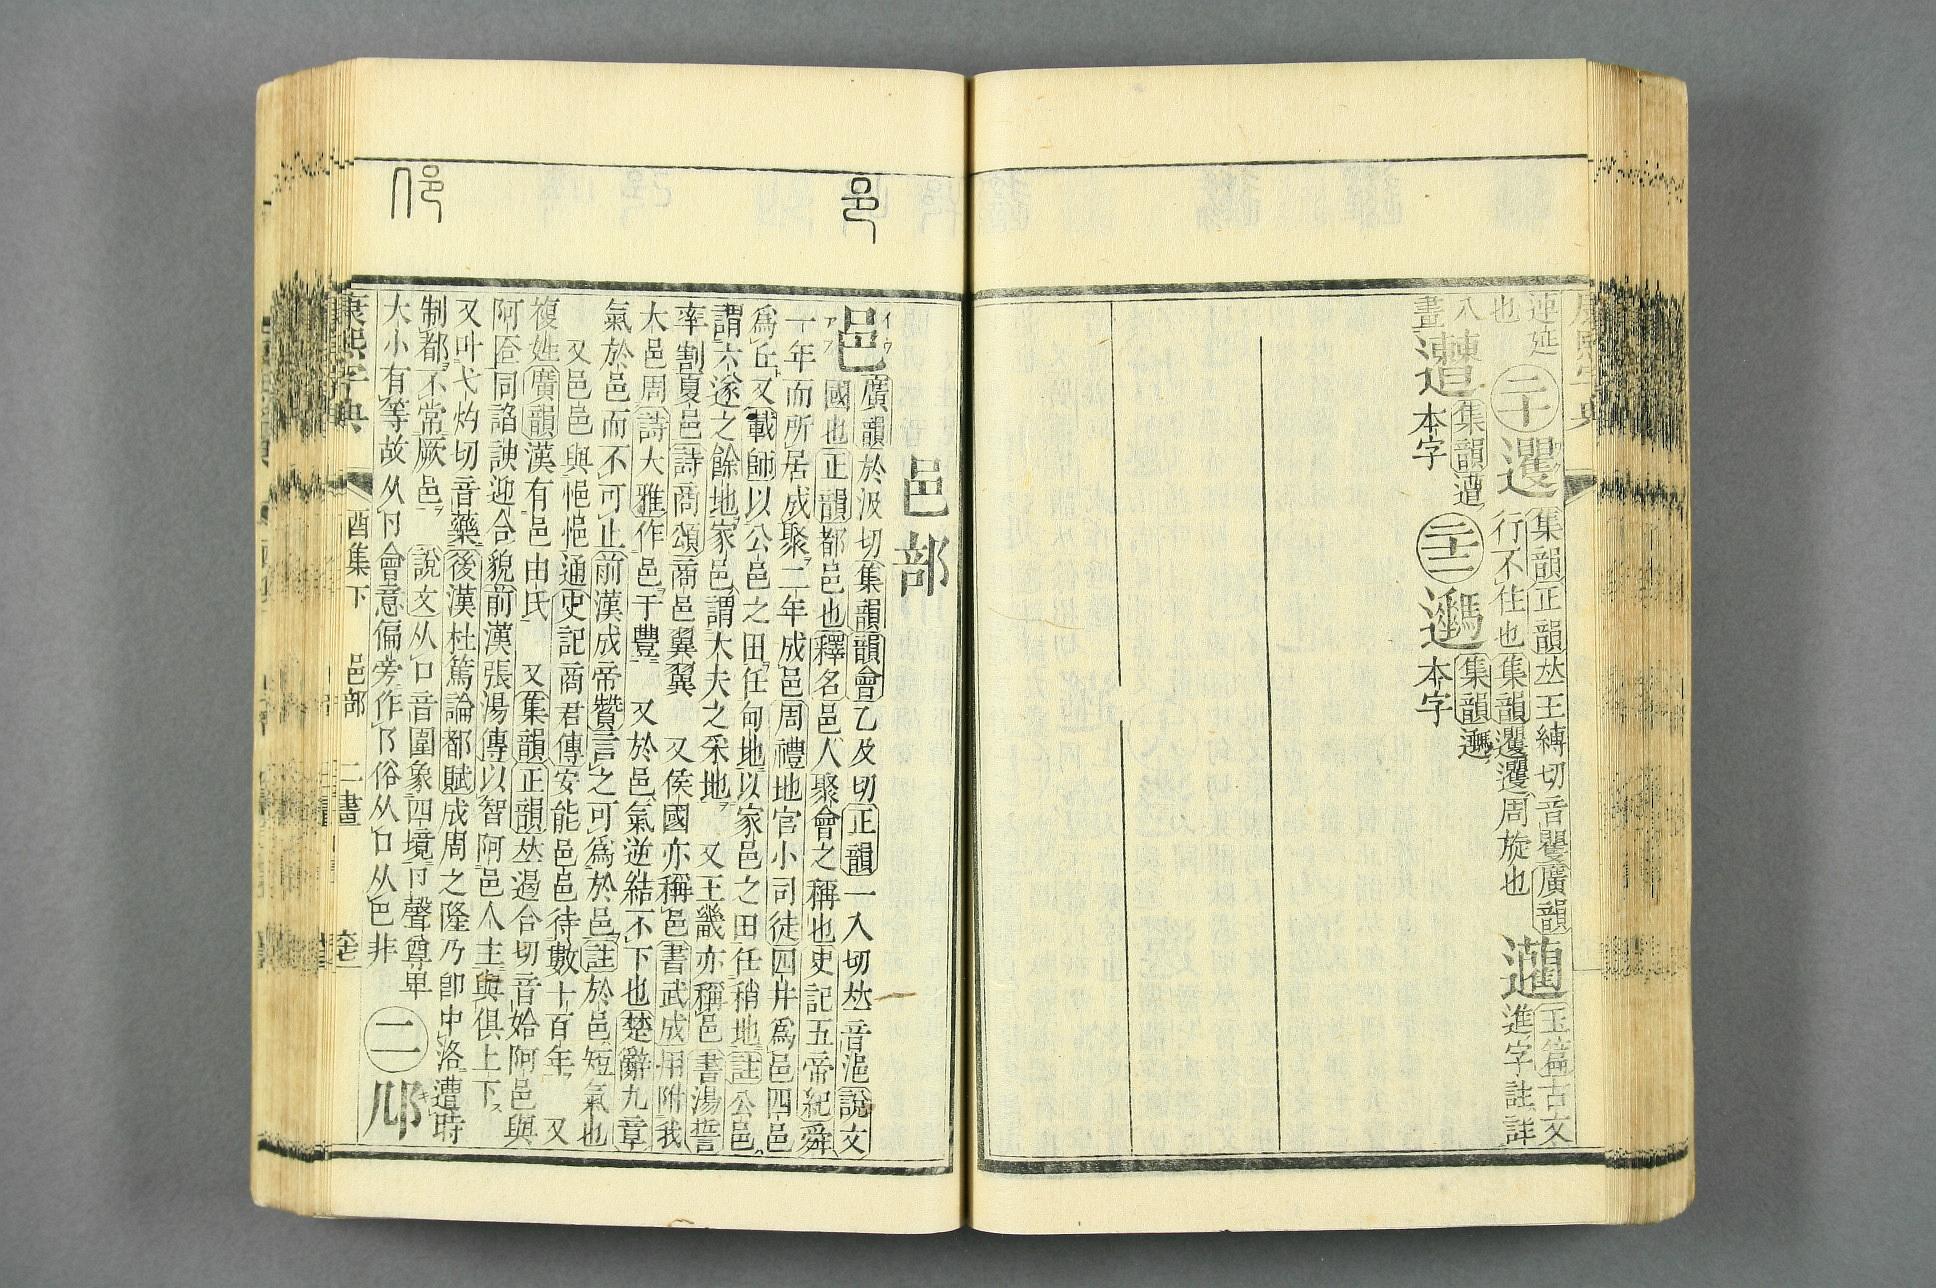 康熙字典
連延
也
二十
集韻正韻𠀤王縛切音矍廣韻
行不住也集韻
周旋也
玉篇古文
進字註詳
八
畫
集韻遭
本字
集韻
本字
邑部
邑
イウ
アフ
廣韻於汲切集韻韻會乙及切正韻一入切𠀤音浥說文
國也正韻都邑也釋名邑人聚會之稱也史記五帝紀舜
一年而所居成聚二年成邑周禮地官小司徒四井爲邑四邑
爲丘又載師以公邑之田任甸地以家邑之田任稍地註公邑
謂六遂之餘地家邑謂大夫之采地 又王畿亦稱邑書湯誓
率割夏邑詩商頌商邑翼翼 又侯國亦稱邑書武成用附我
大邑周詩大雅作邑于豐 又於邑氣逆結不下也楚辭九章
氣於邑而不可止前漢成帝贊言之可爲於邑註於邑短氣也
又邑邑與悒悒通史記商君傳安能邑邑待數十百年 又
複姓廣韻漢有邑由氏 又集韻正韻𠀤遏合切音姶阿邑與
阿匼同諂諛迎合貌前漢張湯傳以智阿邑人主與俱上下
又叶弋灼切音藥後漢杜篤論都賦成周之隆乃卽中洛遭時
制都不常厥邑 說文从口音圍象四境卪聲尊𤰞
大小有等故从卪會意偏旁作阝俗从口从巴非
二
𨙨
康熙字典 酉集下 邑部 二畫